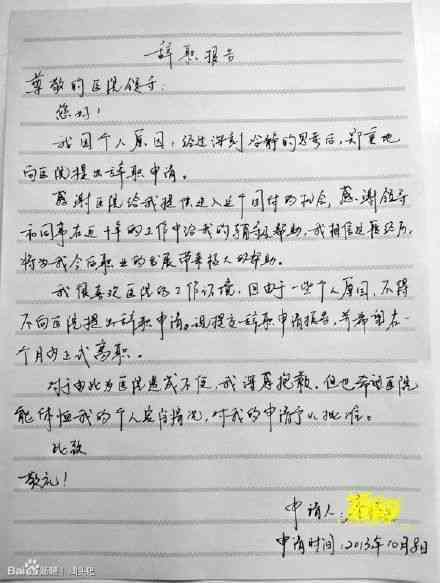 辞职报告
尊敬的医院领导:
您好!
我因个人原因,经过深刻冷静的思考后,郑重地
向医院提出辞职申请。
感谢医院给我提供进入这个团体的机会,感谢领导
和同事在近十年的工作中给我的帮助,我相信这段经历,
将为我今后职业的发展带来极大的帮助。
我很喜欢医院的工作环境,但由于一些个人原因,不得
不向医院提出辞职申请。现提交辞职申请报告,并希望在
一个月内正式离职。
对于由此为医院造成不便,我深为抱歉。但也希望医院
能体恤我的个人实际情况,对我的申请予以批准。
此致
敬礼!
申请人:
申请时间:2013年10月8日
Bai 百科